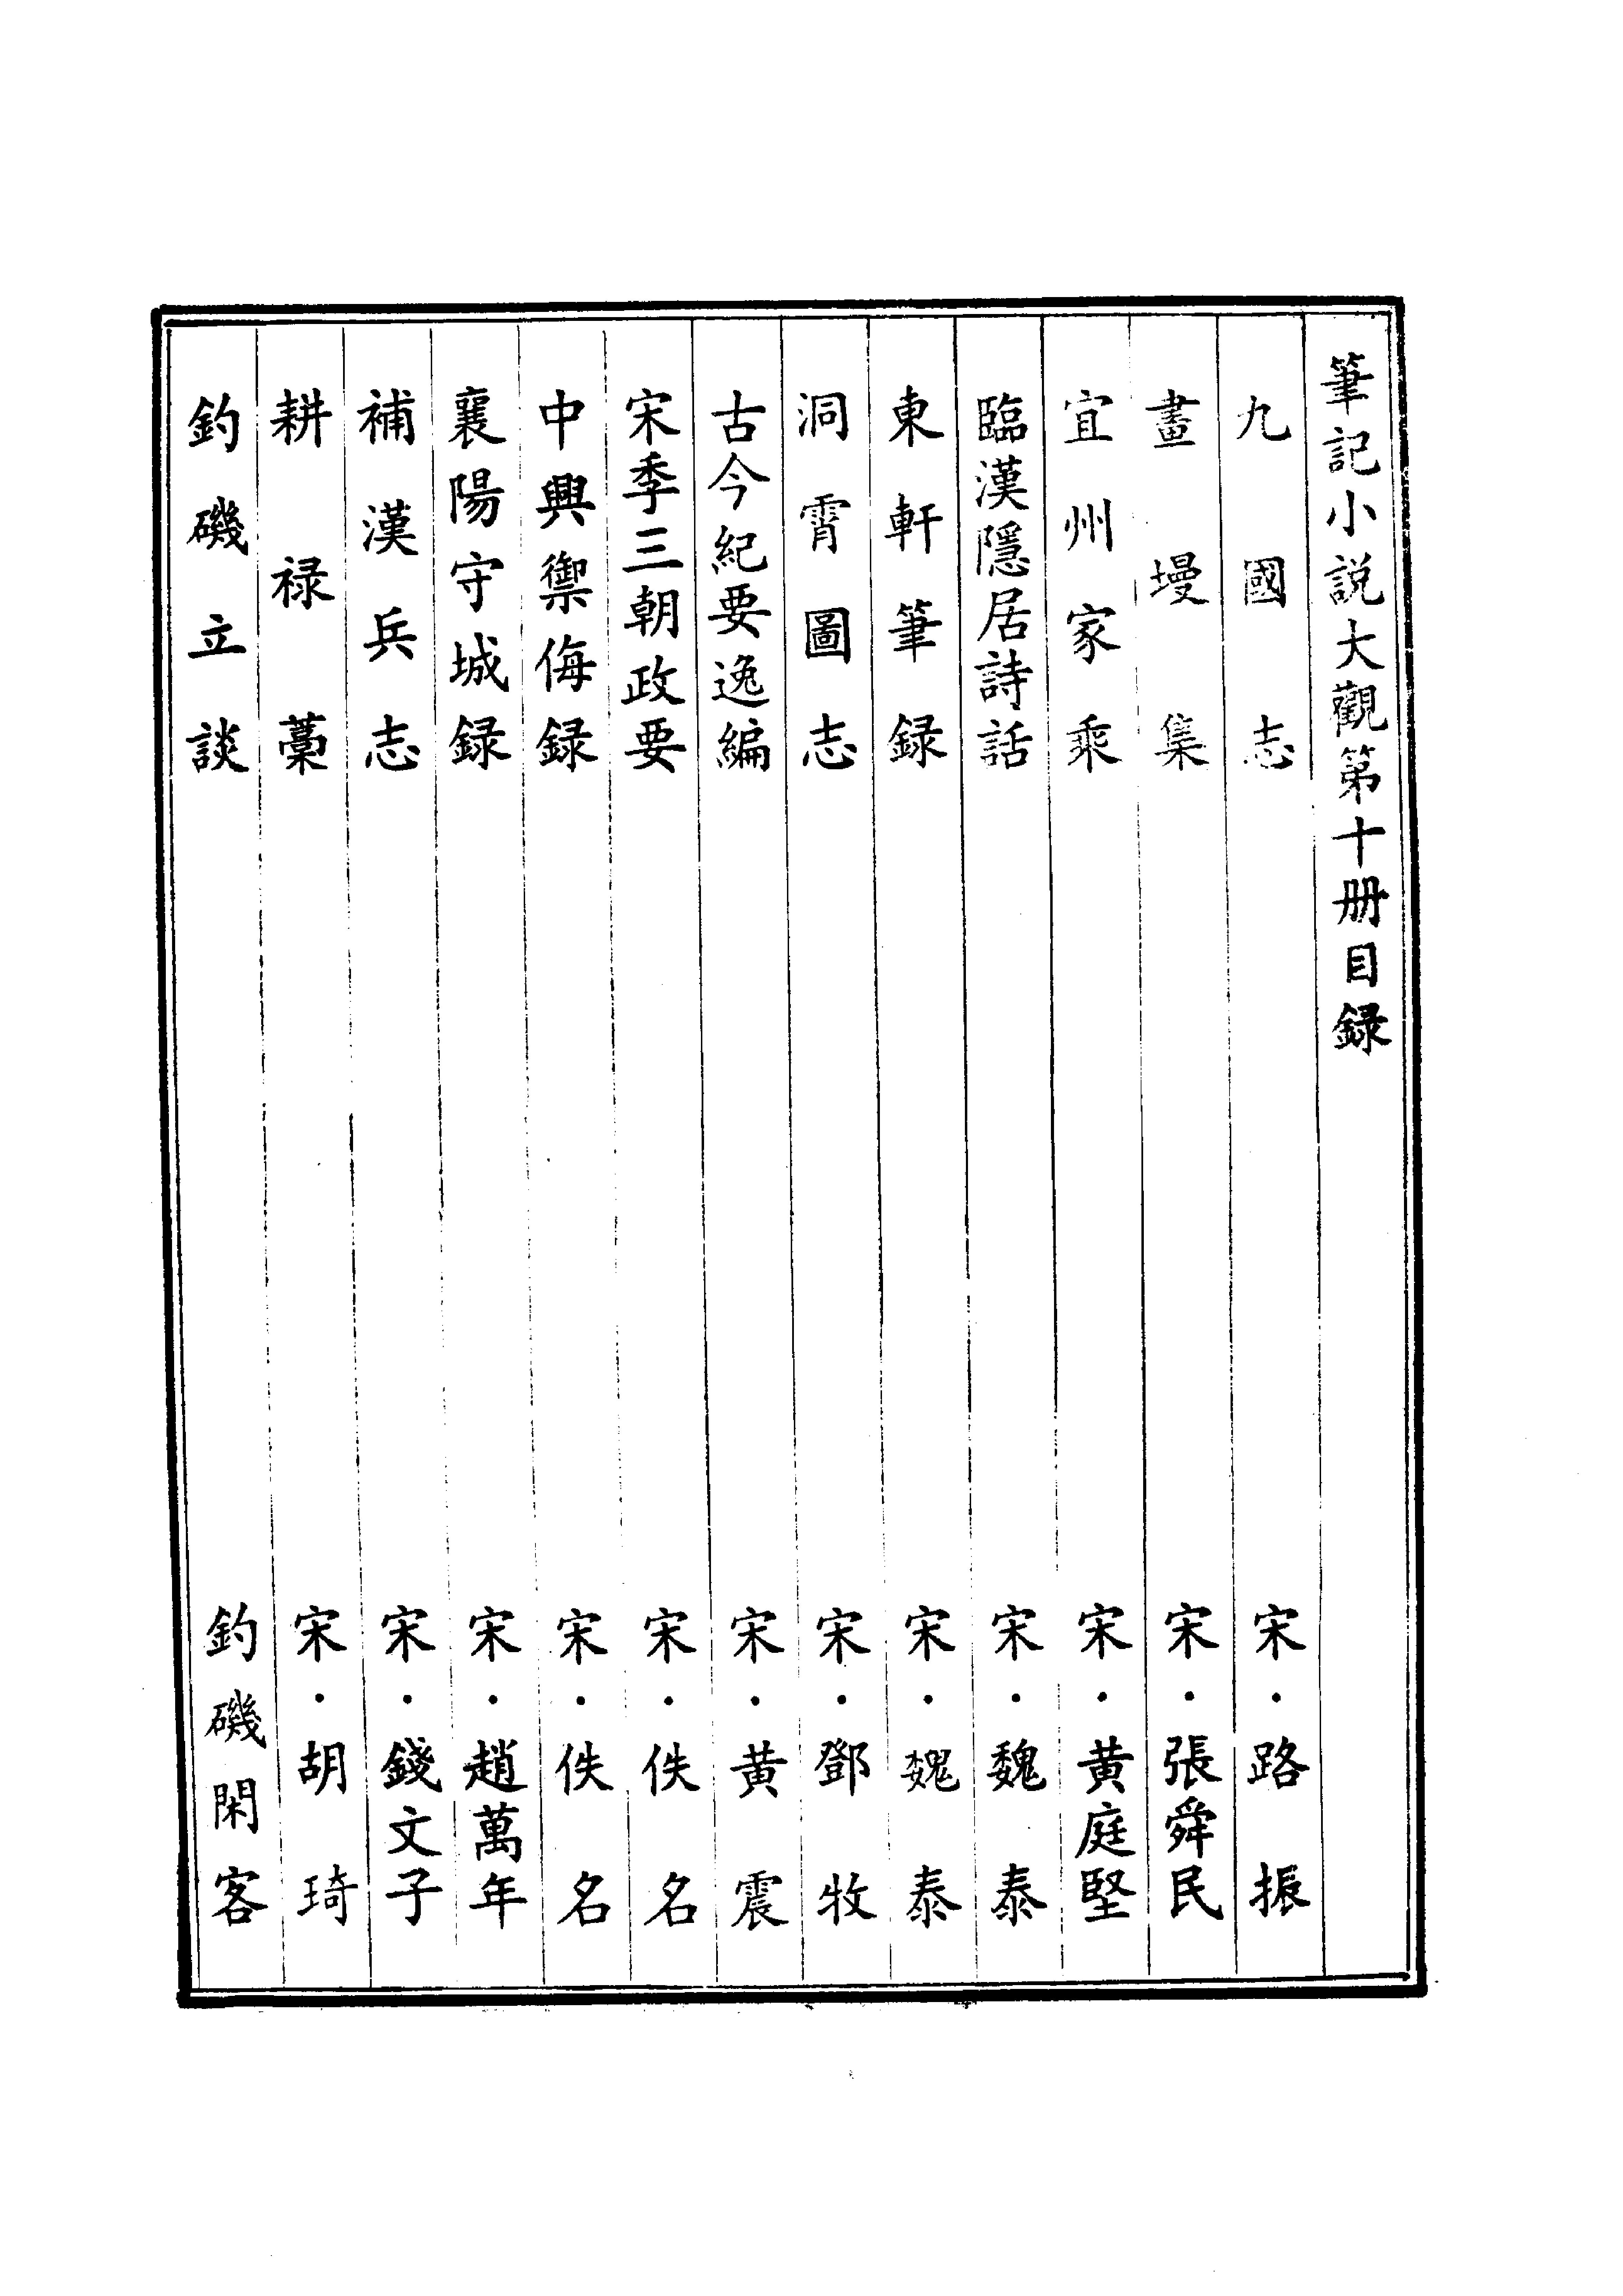 筆記小説大觀第十册目録
九國志 宋·路振
畫墁集 宋·張舜民
宜州家乘 宋·黄庭堅
臨漢隱居詩話 宋·魏泰
東軒筆録 宋·魏泰
洞霄圖志 宋·鄧牧
古今紀要逸編 宋·黄震
宋季三朝政要 宋·佚名
中興禦侮録 宋·佚名
襄陽守城録 宋·趙萬年
補漢兵志 宋·錢文子
耕禄藁 宋·胡琦
釣磯立談 釣磯閑客